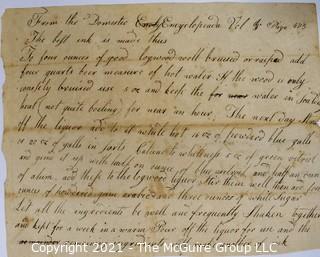 From the Domestic Encyclopeada Vol 4 Page 473
The best ink is made thus
To four ounces of good logwood well bruised or rasped add
four quarts beer measure of hot water If the wood is only
coarsely bruised use 5 oz and keep the water in
heat (not quite boiling) for near an hour. The next day
off the liquor add to it while hot 10 oz of powdered blue galls
12 oz of galls in sorts to whiteness 5 oz of green vitriol
and grind it up with half an ounce of blue and half an ounce
of alum, add these to the logwood liquor stir them well then add four
ounces of powdered gum arabic and three ounces of white sugar
Let all the ingredients be well and frequently shaken together
and kept for a week in a warm Pour off the liquor for use and the
Copyright 2021 - The McGuire Group LLC